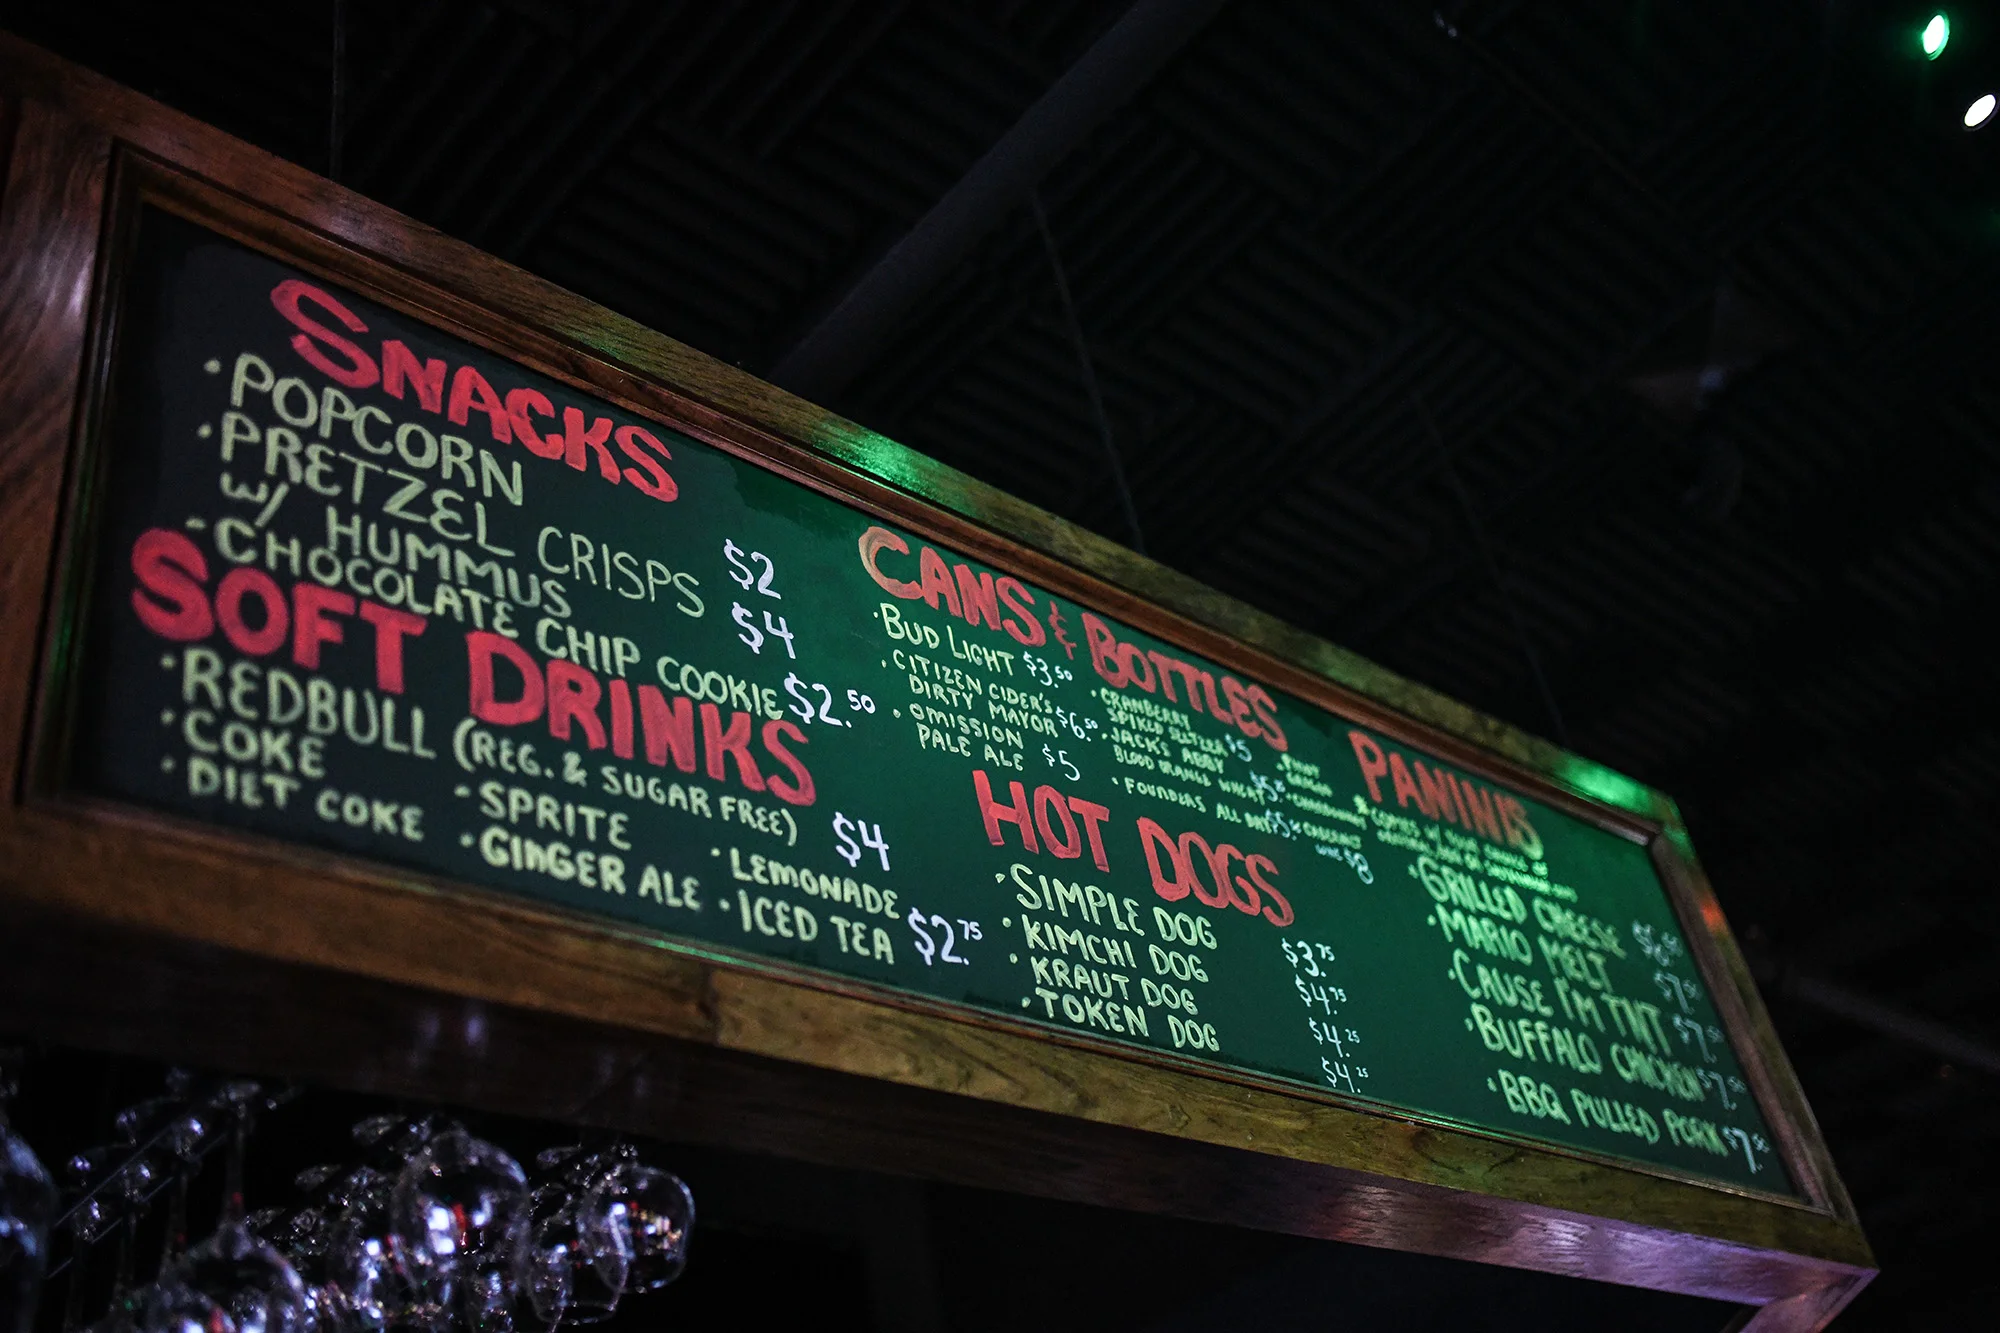 SNACKS
· POPCORN $2
· PRETZEL CRISPS
w/ HUMMUS $4
· CHOCOLATE CHIP COOKIE $2.50
SOFT DRINKS
· REDBULL (REG. & SUGAR FREE) $4
· COKE · SPRITE · LEMONADE
· DIET COKE · GINGER ALE · ICED TEA $2.75
CANS & BOTTLES
· BUD LIGHT $3.50
· CITIZEN CIDER'S
DIRTY MAYOR $6.50
· OMISSION
PALE ALE $5
· CRANBERRY
SPIKED SELTZER $5
· JACK'S ABBY
BLOOD ORANGE WHEAT $5.
· FOUNDERS ALL DAY $5
· PINOT
GRIGIO
· CHARDONNAY
· CABERNET
$8
HOT DOGS
· SIMPLE DOG $3.75
· KIMCHI DOG $4.75
· KRAUT DOG $4.25
· TOKEN DOG $4.25
PANINIS
* COMES W/ YOUR CHOICE OF
· GRILLED CHEESE $6.50
· MARIO MELT $7.50
· CAUSE I'M TNT $7.50
· BUFFALO CHICKEN $7.50
· BBQ PULLED PORK $7.50